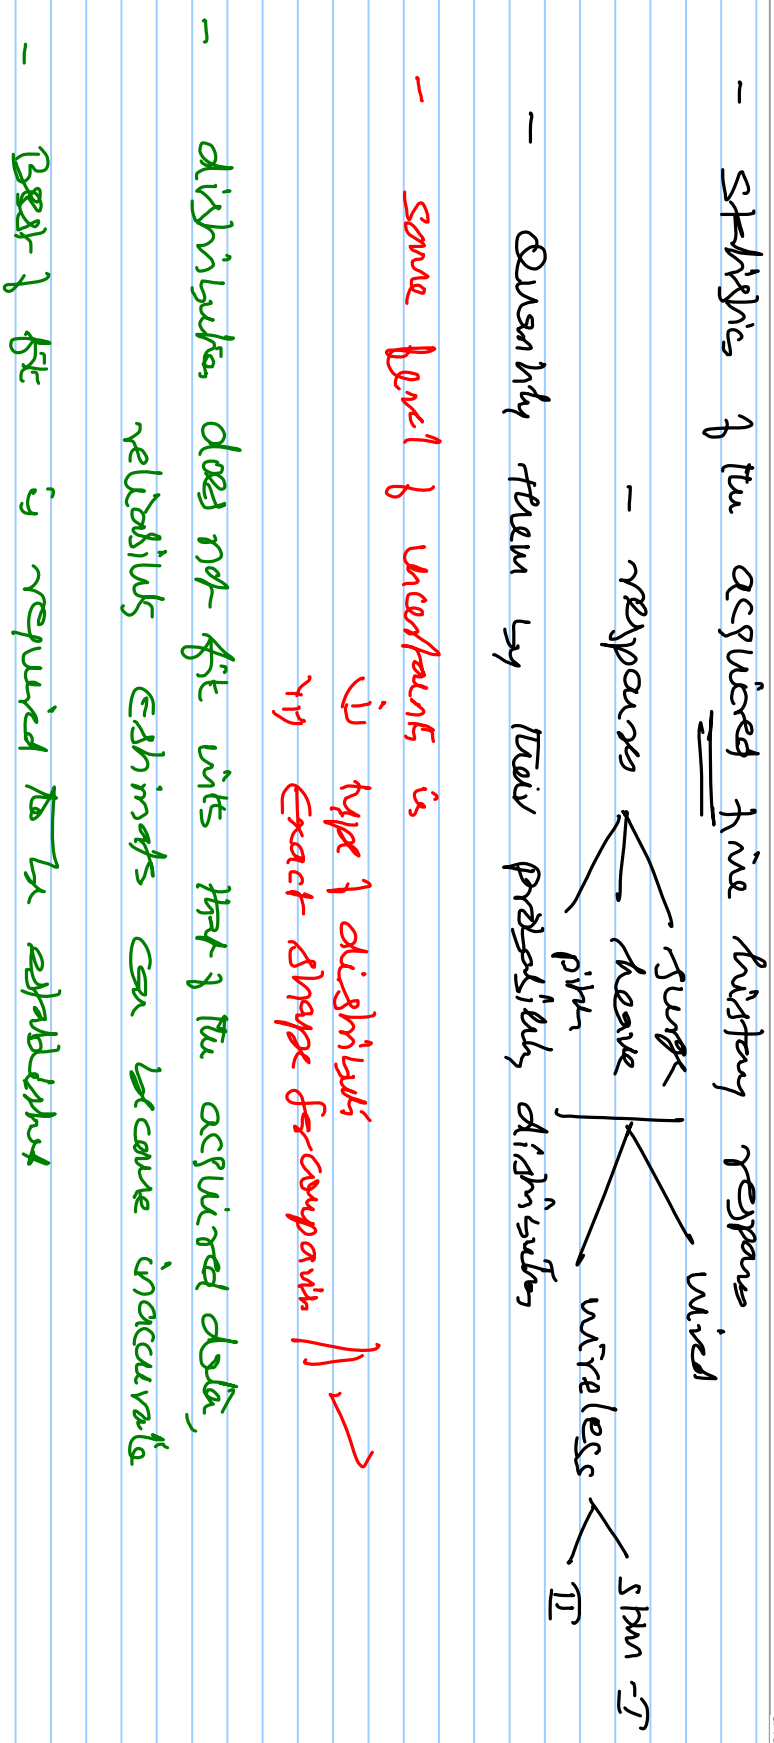 - Statistics of the acquired time history respons
- responses
surge
heave
pitch
wired
wireless
shm - I
II
- Quantify them by their probability distribution
- some level of uncertainty is
i) type of distribution
ii) Exact shape for comparison
- distribution does not fit with that of the acquired data,
reliability estimates can become inaccurate
- Best of fit is required to be established